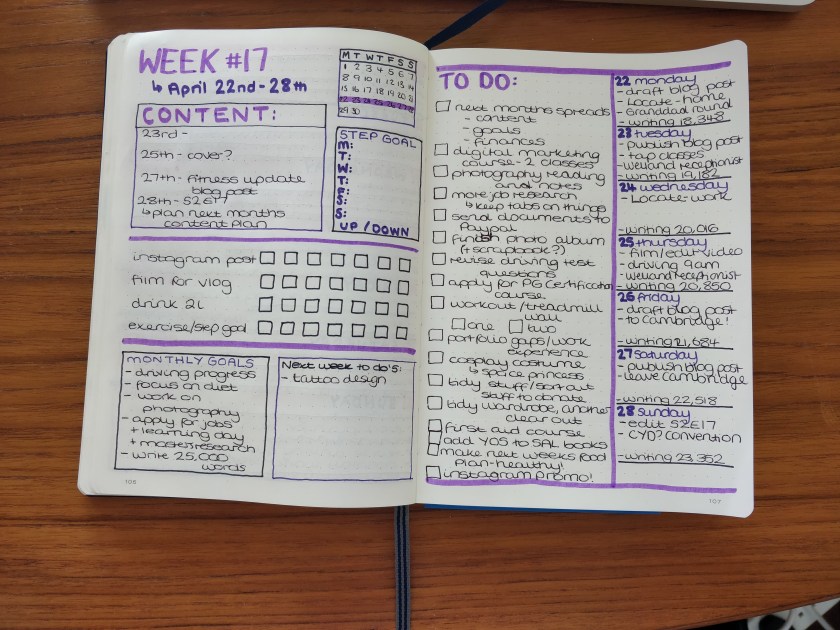 WEEK #17
↳ April 22nd-28th
M T W T F S S
1 2 3 4 5 6 7
8 9 10 11 12 13 14
15 16 17 18 19 20 21
22 23 24 25 26 27 28
29 30
CONTENT:
23rd -
25th - cover?
27th - fitness update
blog post
28th - S2E17
↳ plan next months
content plan
STEP GOAL
M:
T:
W:
T:
F:
S:
S:
UP / DOWN
instagram post
film for vlog
drink 2L
exercise/step goal
MONTHLY GOALS
- driving progress
- focus on diet
- work on
photography
- apply for jobs
+ learning day
+ masters research
- write 25,000
words
Next week to do's:
- tattoo design
106
TO DO:
next months spreads
- content
- goals
- finances
digital marketing
course - 2 classes
photography reading
and notes
more job research
↳ keep tabs on things
send documents to
Paypal
finish photo album
(+ scrapbook?)
revise driving test
questions
apply for PG Certification
course
workout/treadmill
walk
one two
portfolio gaps/work
experience
cosplay costume
↳ space princess
tidy stuff/sort out
stuff to donate
tidy wardrobe, another
clear out
first aid course
add YOS to SAL books
make next weeks food
plan-healthy!
instagram promo!
22 monday
- draft blog post
- Locate-home
- Granddad round
- writing 18,348
23 tuesday
- publish blog post
- tap classes
- welland receptionist
- writing 19,182
24 wednesday
- Locate-work
- writing 20,016
25 thursday
- film/edit video
- driving 9am
- welland receptionist
- writing 20,850
26 friday
- draft blog post
- to Cambridge!
- writing 21,684
27 saturday
- publish blog post
- leave Cambridge
- writing 22,518
28 sunday
- edit S2E17
- CYD? Convention
- writing 23,352
107